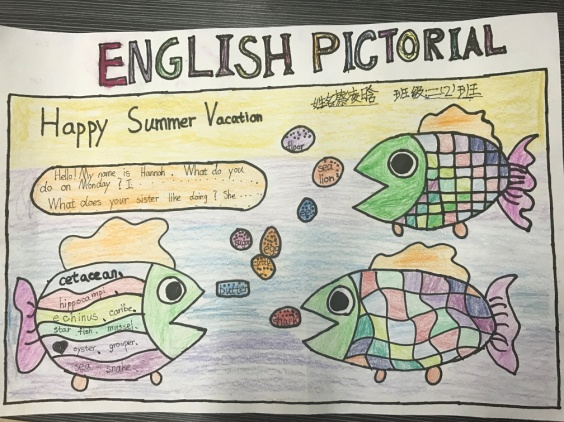 ENGLISH PICTORIAL
姓名 班级:二(2)班
Happy Summer Vacation
Hello! My name is Hannah. What do you
do on Monday? I
What does your sister like doing? She
floor
sea
lion
butter
cetacean
hippocampi
echinus caribe
star fish. mussel
oyster grouper
sea snake